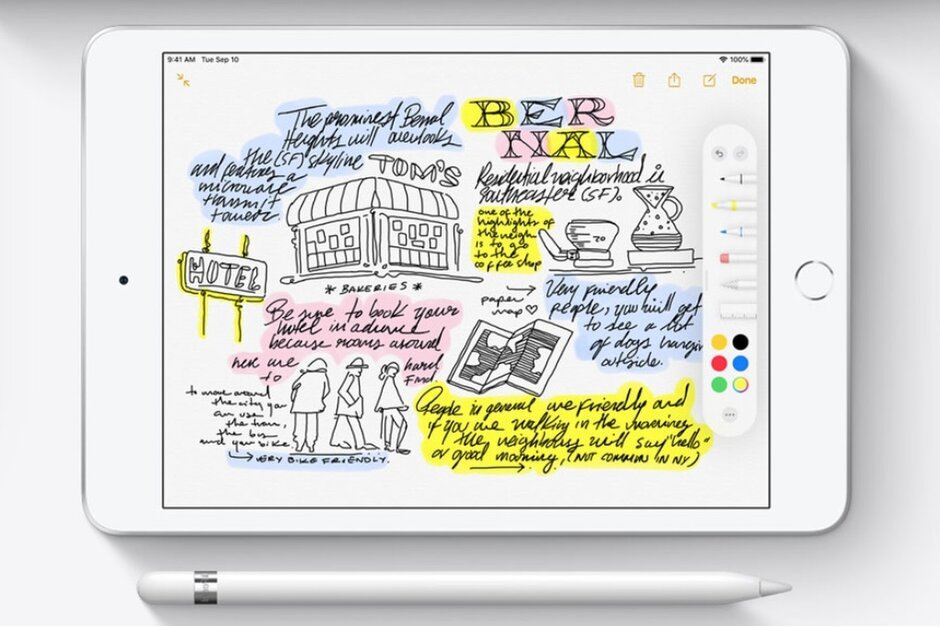 9:41 AM Tue Sep 10
100%
Done
The prominent Bernal
Heights will overlooks
the (SF) skyline
and features a
microwave
transmit
tower.
TOM'S
* BAKERIES *
HOTEL
BER
NAL
Residential neighborhood in
southeaster (SF).
one of the
highlights of
the neigh
is to go
to the
coffee shop
20
Very friendly
people, you will get
to see a lot
of dogs hangin
outside.
paper
map
Be sure to book your
hotel in advance
because rooms around
here are hard
to find
to move around
the city you
can use
the train,
the bus
and your bike.
VERY BIKE FRIENDLY.
People in general are friendly and
if you are walking in the mornings
the neighbors will say "hello"
or good morning, (NOT COMMON IN NY)